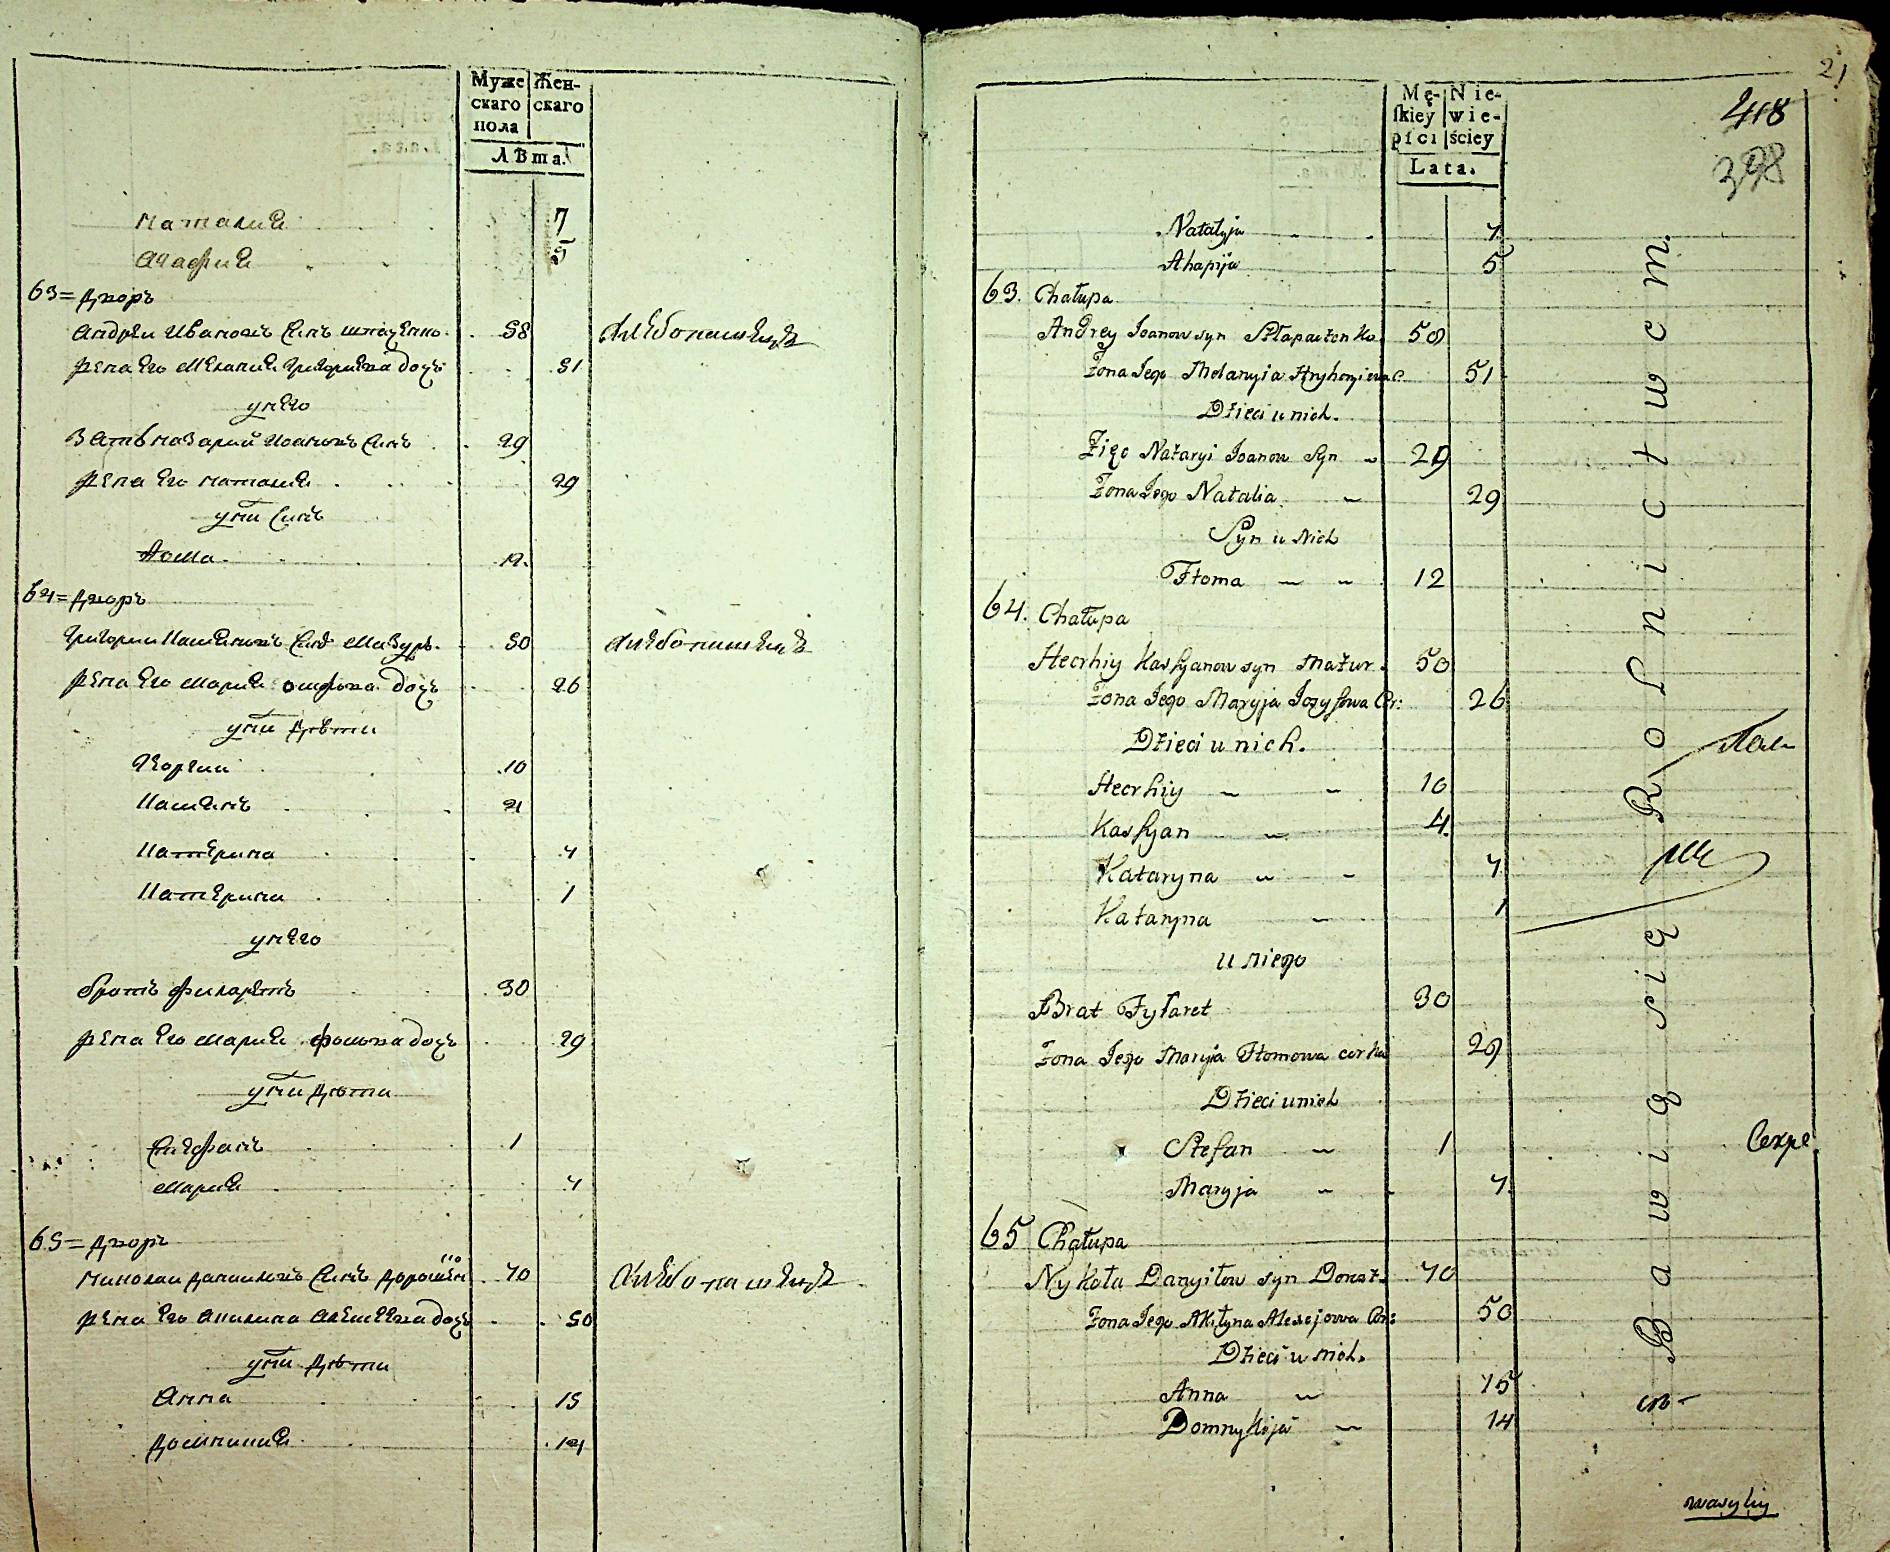 Муже Жен-
скаго скаго
пола
Лѣта.
Наталия 7
Агафия 5
63 = Дворъ
Андрей Ивановъ синъ 58 Хлебопашецъ
жена его Мелания Григориева доч: 51
у него
Зять Назарий Ивановъ синъ 29
жена его Наталия 29
у них синъ
Фома 12
64 = Дворъ
Григорий Касияновъ синъ Мазуръ 50 Хлебопашецъ
жена его Мария доч 26
у них дѣти
Георгий 10
Касиянъ 4
Катерина 7
Катерина 1
у него
братъ Филаретъ 30
жена его Мария Фомова доч 29
у них дѣти
Стефанъ 1
Мария 7
65 = Дворъ
Николай Даниловъ синъ 70 Хлебопашецъ
жена его Акилина Алексеева доч 50
у них дѣти
Анна 15
Домникия 14
21
Mę- Nie-
ſkiey wie-
płci ściey
Lata.
418
398
Natalyja 7
Ahapija 5
63. Chałupa
Andrey Joanow syn 58
Żona Jego Melanyia Hryhoryiewa C. 51
Dzieci u nich.
Zięc Nazaryi Joanow Syn 29
Żona Jego Natalia 29
Syn u Nich
Ftoma 12
64. Chałupa
Heorhiy Kassyanow syn Mazur 50
Żona Jego Maryja Jozyfowa Cor: 26
Dzieci u nich.
Heorhiy 10
Kassyan 4
Kataryna 7
Kataryna 1
u niego
Brat Fyłaret 30
Żona Jego Maryja Ftomowa corka 29
Dzieci u nich
Stefan 1
Maryja 7
65 Chałupa
Nykoła Danyiłow syn 70
Żona Jego Akiłyna Alexejowa Cor: 50
Dzieci u nich.
Anna 15
Domnykija 14
Bawią się Rolnictwem.
Секре
wasyliy